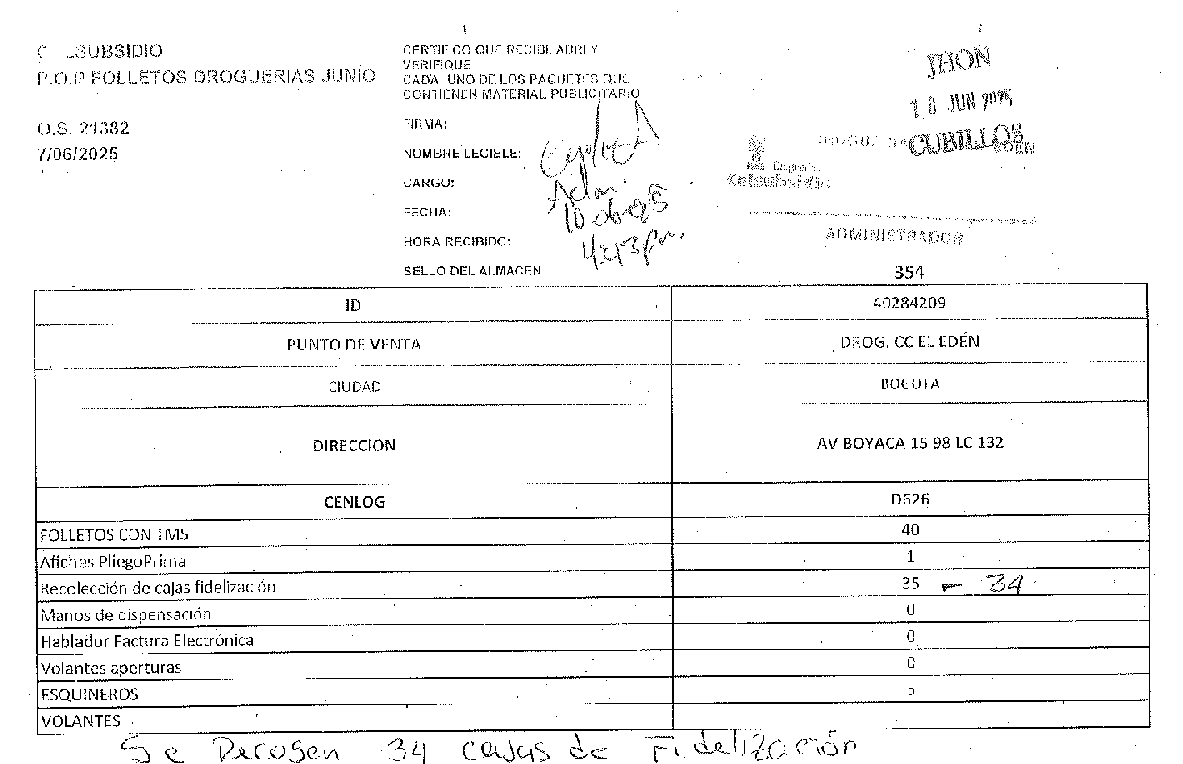 COLSUBSIDIO
P.O.P FOLLETOS DROGUERIAS JUNIO
O.S. 21382
7/06/2025
CERTIFICO QUE RECIBI, ABRI Y
VERIFIQUE
CADA UNO DE LOS PAQUETES QUE
CONTIENEN MATERIAL PUBLICITARIO
FIRMA:
NOMBRE LEGIBLE:
CARGO: Adm.
FECHA: 10 06-25
HORA RECIBIDO: 4:43 pm.
SELLO DEL ALMACEN
JHON
10 JUN 2025
CUBILLOS
Colsubsidio
ADMINISTRADOR
354
ID 40284209
PUNTO DE VENTA DROG. CC EL EDÉN
CIUDAD BOGOTA
DIRECCION AV BOYACA 15 98 LC 132
CENLOG D526
FOLLETOS CON TMS 40
Afiches PliegoPrima 1
Recolección de cajas fidelización 35 - 34
Manos de dispensación 0
Hablador Factura Electrónica 0
Volantes aperturas 0
ESQUINEROS
VOLANTES
Se Recogen 34 cajas de Fidelización